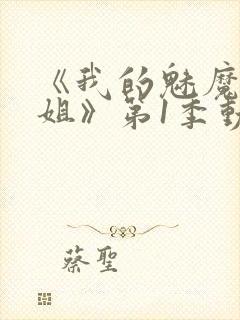 《我的魅魔
姐》第1季動
蔡聖